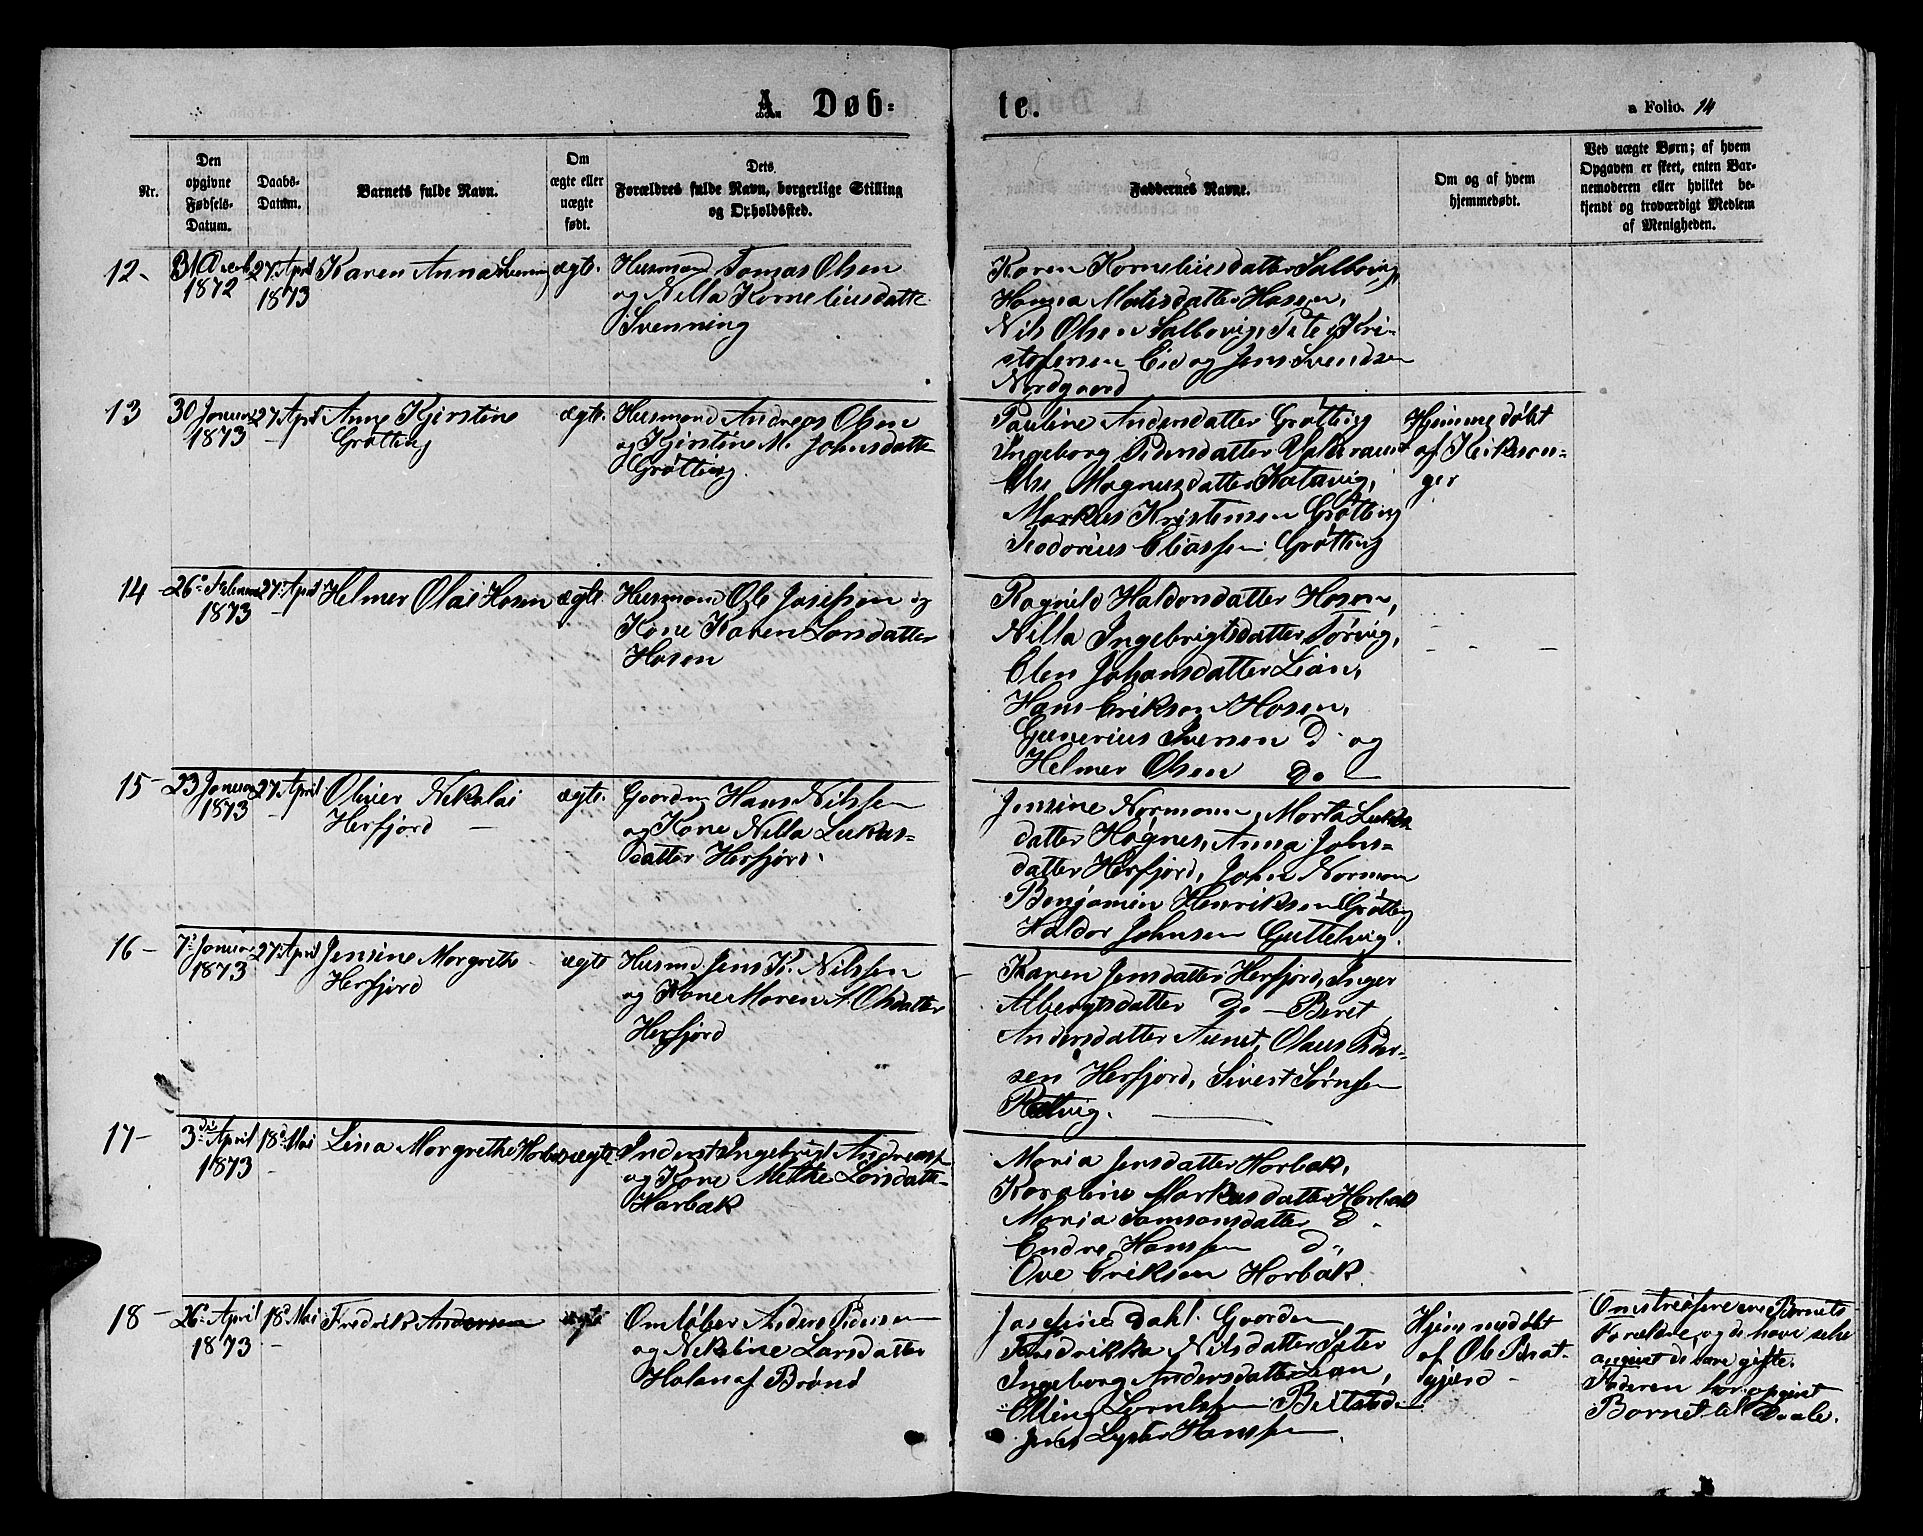 A. Døb=
te.
a Folio. 14
Nr.
Den opgivne Fødsels-Datum.
Daabs-Datum.
Barnets fulde Navn.
Om ægte eller uægte født.
Dets Forældres fulde Navn, borgerlige Stilling og Opholdssted.
Faddernes Navne.
Om og af hvem hjemmedøbt.
Ved uægte Børn; af hvem Opgaven er skeet, enten Barnemoderen eller hvilket bekjendt og troværdigt Medlem af Menigheden.
12-
31 Decb
1872
27 April
1873
Karen Anna Svenning
ægte.
Husmand Tomas Olsen
og Nilla Korneliusdatte
Svenning
Karen Korneliusdatter Salbuvig,
Hanna Matisdatter Hasen,
Nils Olsen Salbuvig, Peter Kri-
stofersen Eid og Jens Svendsen
Nordgaard
13
30 Januar
1873
27 April
Anne Kjirstine
Grøtting
ægte.
Husmand Andreas Olsen
og Kjirstine M. Johnsdatte
Grøtting.
Pauline Andersdatter Grøtting
Ingeborg Pedersdatter
Else Magnusdatter Katavig,
Markus Kristensen Grøtting
Teodorius Eliassen Grøtting
Hjemmedøbt
af Kirkesan-
ger
14
26 Februar
1873
27 April
Helmer Olai Hosen
ægte.
Husmand Ole Josefsen og
Kone Karen Larsdatter
Hosen
Ragnild Haldorsdatter Hosen,
Nilla Ingebrigtsdatter Tørvig,
Elen Johansdatter Lian,
Hans Erikson Hosen,
Gunerius Iversen d- og
Helmer Olsen Do
15-
23 Januar
1873
27 April
Oliver Nikolai
Herfjord -
ægte.
Gaardm Hans Nilssen
og Kone Nilla Lukas=
datter Herfjord.
Jensine Normann, Marta Lukas
datter Hognes, Anna Johns=
datter Herfjord, John Norman
Benjamin Henriksen Grøtting
Haldor Johnsen Guttelvig.
16-
7 Januar
1873
27 April
Jensine Margrethe
Herfjord
ægte
Husmd Jens K. Nilssen
og Kone Maren A. Olsdatter
Herfjord
Karen Jensdatter Herfjord, Inger
Albergtsdatter Do - Beret
Andersdatter Aunet, Olaus Peder-
sen Herfjord, Sivert Sørnsen
Ratvig.
17-
3die April
1873
18 Mai
Lina Margrethe Horbak
ægte
Inderst Ingebrigt Andreass
og Kone Methe Larsdatte-
Harbak
Maria Jensdatter Harbak,
Karoline Markusdatter Harbak
Maria Samsonsdatter d.
Endre Hanssen d.
Ove Eriksen Harbak.
18-
26 April
1873
18 Mai
Fredrik Andersen
ægte
Omløber Anders Pedersen
og Nikoline Larsdatter
Holan af Brønø
Josefine Dahl. Gaarden
Fredrikka Nilsdatter Sæter
Ingeborg Andersdatter Lian,
Elling Beitstad
Jens Lyder Hanssen.
Hjemmedøbt
af Ole Brat-
gjerd -
Omstreifere ere Barnets
Forældre, og de have selv
angivet de vare gifte.
Faderen har opgivet
Barnet til Daab.